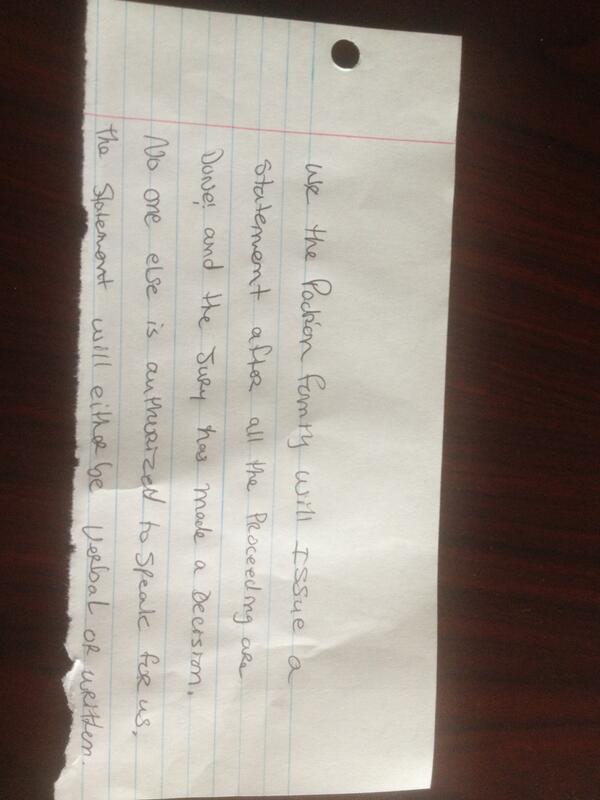 We the Padron family will Issue a
statement after all the Proceeding are
Done! and the Jury has made a Decision.
No one else is authorized to speak for us.
the statement will either be Verbal or written.